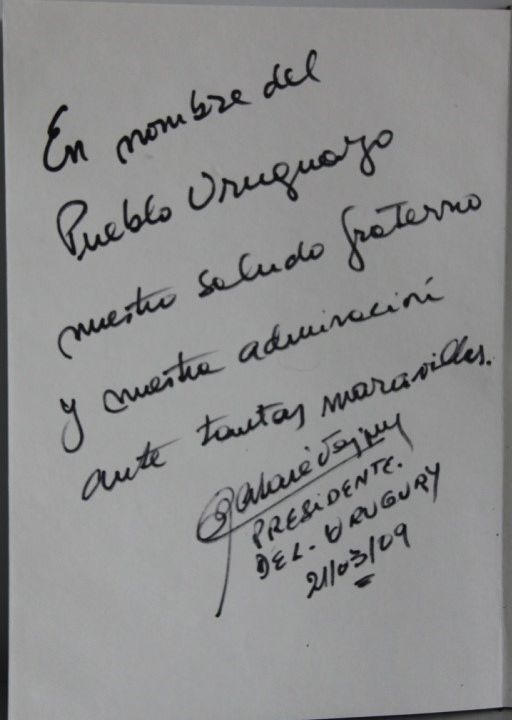 En nombre del
Pueblo Uruguayo
nuestro saludo fraterno
y nuestra admiración
ante tantas maravillas.
Tabaré Vázquez
PRESIDENTE.
DEL. URUGURY
21/03/09